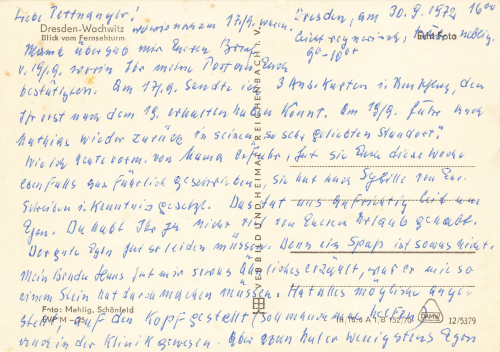 Liebe Tettnanger!
Dresden, am 30.9.1972 16oo
Dresden-Wachwitz
Blick vom Fernsehturm
17/9. waren.
Echt Foto
leicht regnerisch, neblig.
9o-10oo
Mama übergab mir Eueren Brief
v. 19/9. worin Ihr meine Posten Euch
bestätigen. Am 17/9. sandte ich 3 Ans. Karten
Ihr erst nach dem 19. erhalten haben könnt. Am 18/9. fuhr auch
Mathias wieder zurück in seinen so sehr geliebten "Standort".
Wie ich heute vorm. von Mama erfuhr, hat sie Euch diese Woche
ebenfalls ausführlich geschrieben, sie hat auch Sybille von Eur.
Schreiben i. Kenntnis gesetzt. Das tat uns aufrichtig leid um
Egon. Da habt Ihr ja nicht viel von Eueren Urlaub gehabt.
Der gute Egon hat so leiden müssen. Denn ein Spaß ist sowas nicht.
Mein Bruder Hans hat mir sowas Ähnliches erzählt, was er mit so
einem Stein hat durchmachen müssen. Hat alles mögliche ange-
stellt, auf den Kopf gestellt (soll manchmal helfen)
auch in der Klinik gewesen. Aber nun hat er wenigstens Egon
VERB BILD UND HEIMAT REICHENBACH I. V.
Foto: Mahlig, Schönfeld
12/5379